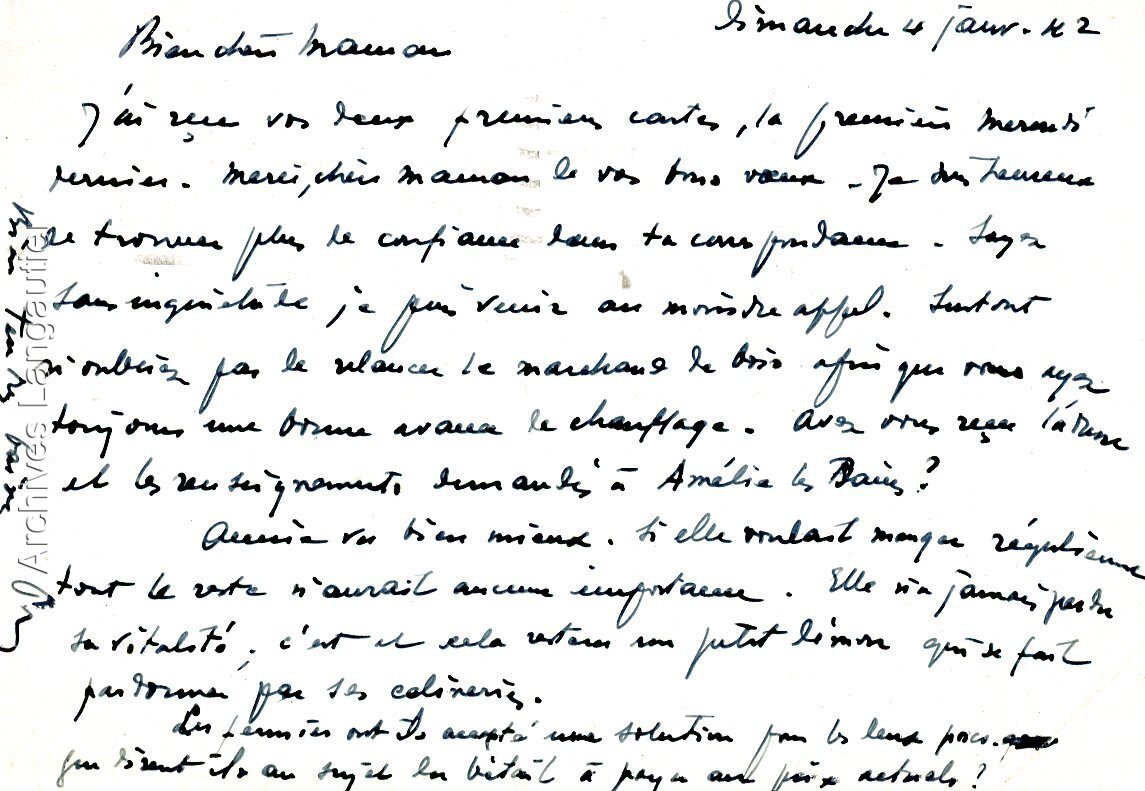 Dimanche 4 janv. 42
Bien chère Maman
J'ai reçu vos deux premières cartes, la première mercredi
dernier. Merci, chère Maman de vos bons vœux. Je suis heureux
de trouver plus de confiance dans ta correspondance. Soyez
sans inquiétude je puis venir au moindre appel. Surtout
n'oubliez pas de relancer le marchand de bois afin que vous ayez
toujours une bonne avance de chauffage. Avez vous reçu l'adresse
et les renseignements demandés à Amélie les Bains ?
Annie va bien mieux. Si elle voulait manger régulièrement
tout le reste n'aurait aucune importance. Elle n'a jamais perdu
sa vitalité, c'est et cela restera un petit démon qui se fait
pardonner par ses calineries.
Les fermiers ont ils accepté une solution pour les deux porcs.
Que disent ils au sujet du bétail à payer aux prix actuels ?
Archives Langautier